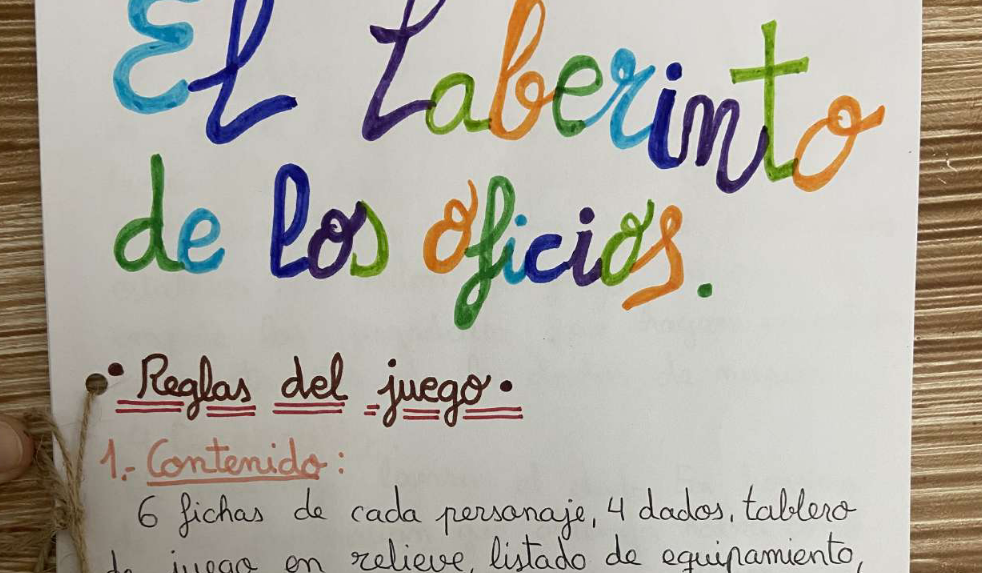 El Laberinto
de los oficios.
• Reglas del juego •
1.- Contenido:
6 fichas de cada personaje, 4 dados, tablero
de juego en relieve, listado de equipamiento,